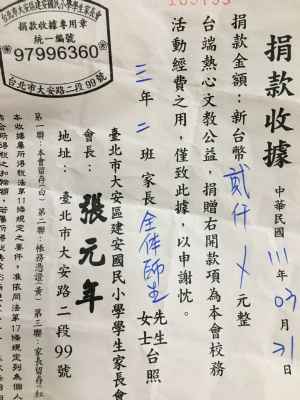 捐款收據
中華民國111年03月31日
捐款金額：新台幣貳仟〤元整
台端熱心文教公益，捐贈右開款項為本會校務
活動經費之用，僅致此據，以申謝忱。
三年二班家長全体師生先生女士台照
臺北市大安區建安國民小學學生家長會
會長：張元年
地址：臺北市大安路二段99號
第一聯：本會留存(白) 第二聯：帳務憑證(黃) 第三聯：家長留存(紅)
本收據屬所得稅法第11條規定之要件，准依同法第17條規定列為個人
臺北市大安區建安國民小學學生家長會
捐款收據專用章
統一編號
97996360
台北市大安路二段99號